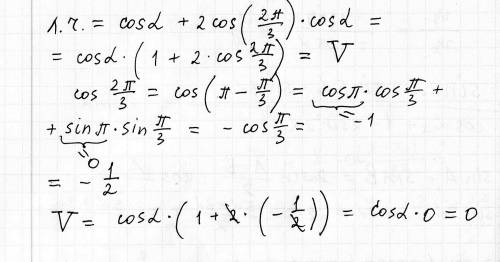 л.ч. = cosα + 2 cos(2π/3) · cosα =
= cosα · (1 + 2 · cos 2π/3) = V
cos 2π/3 = cos(π − π/3) = cosπ · cos π/3 +
= −1
+ sinπ · sin π/3 = − cos π/3 =
= 0
= − 1/2
V = cosα · (1 + 2 · (− 1/2)) = cosα · 0 = 0